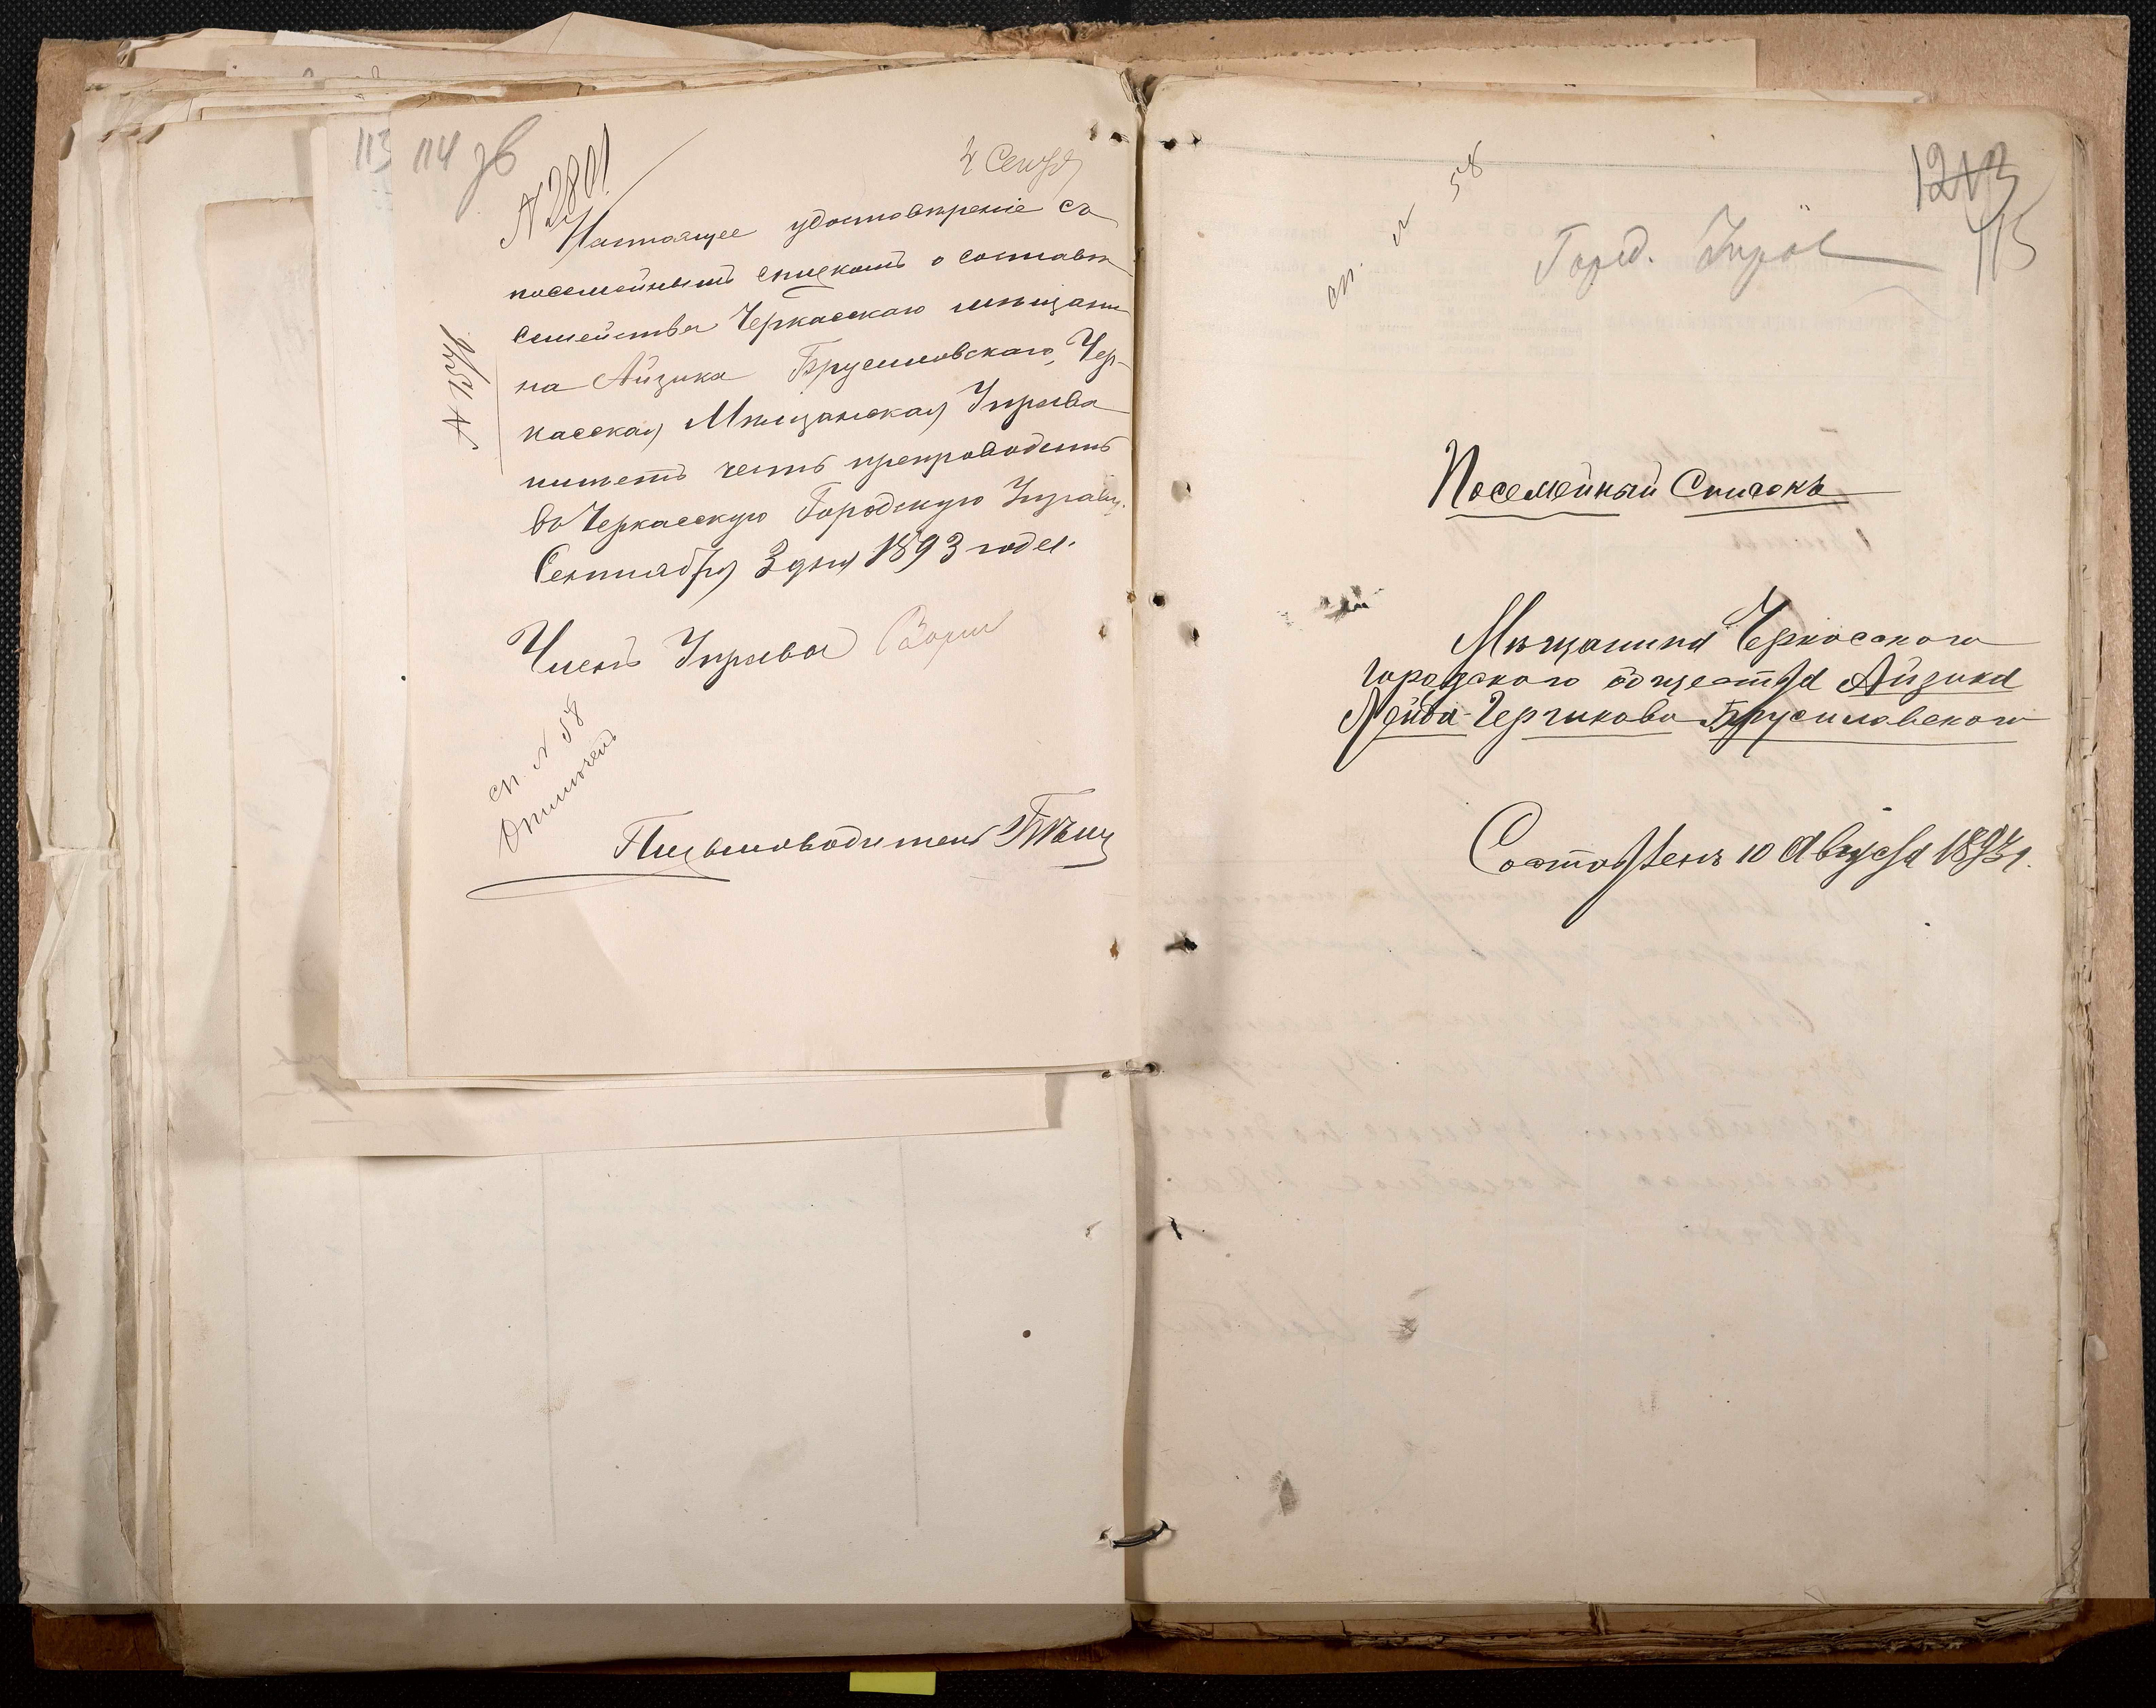 113 114 зв
№ 2801
4 Сент
Настоящее удостоверенiе съ
посемейнымъ спискомъ о составѣ
семейства Черкасскаго мѣщани
на Айзика Брусиловскаго, Чер-
касская Мѣщанская Управа
имѣетъ честь препроводить
въ Черкасскую Городскую Управу.
Сентября 3 дня 1893 года.
Членъ Управы
сп. № 58
Письмоводитель
сп. № 58
115
Город. Упр
Посемейный Списокъ
Мѣщанина Черкасского
городского общества Айзика
Лейба-Герчикова Брусиловского
Составленъ 10 Августа 1893 г.